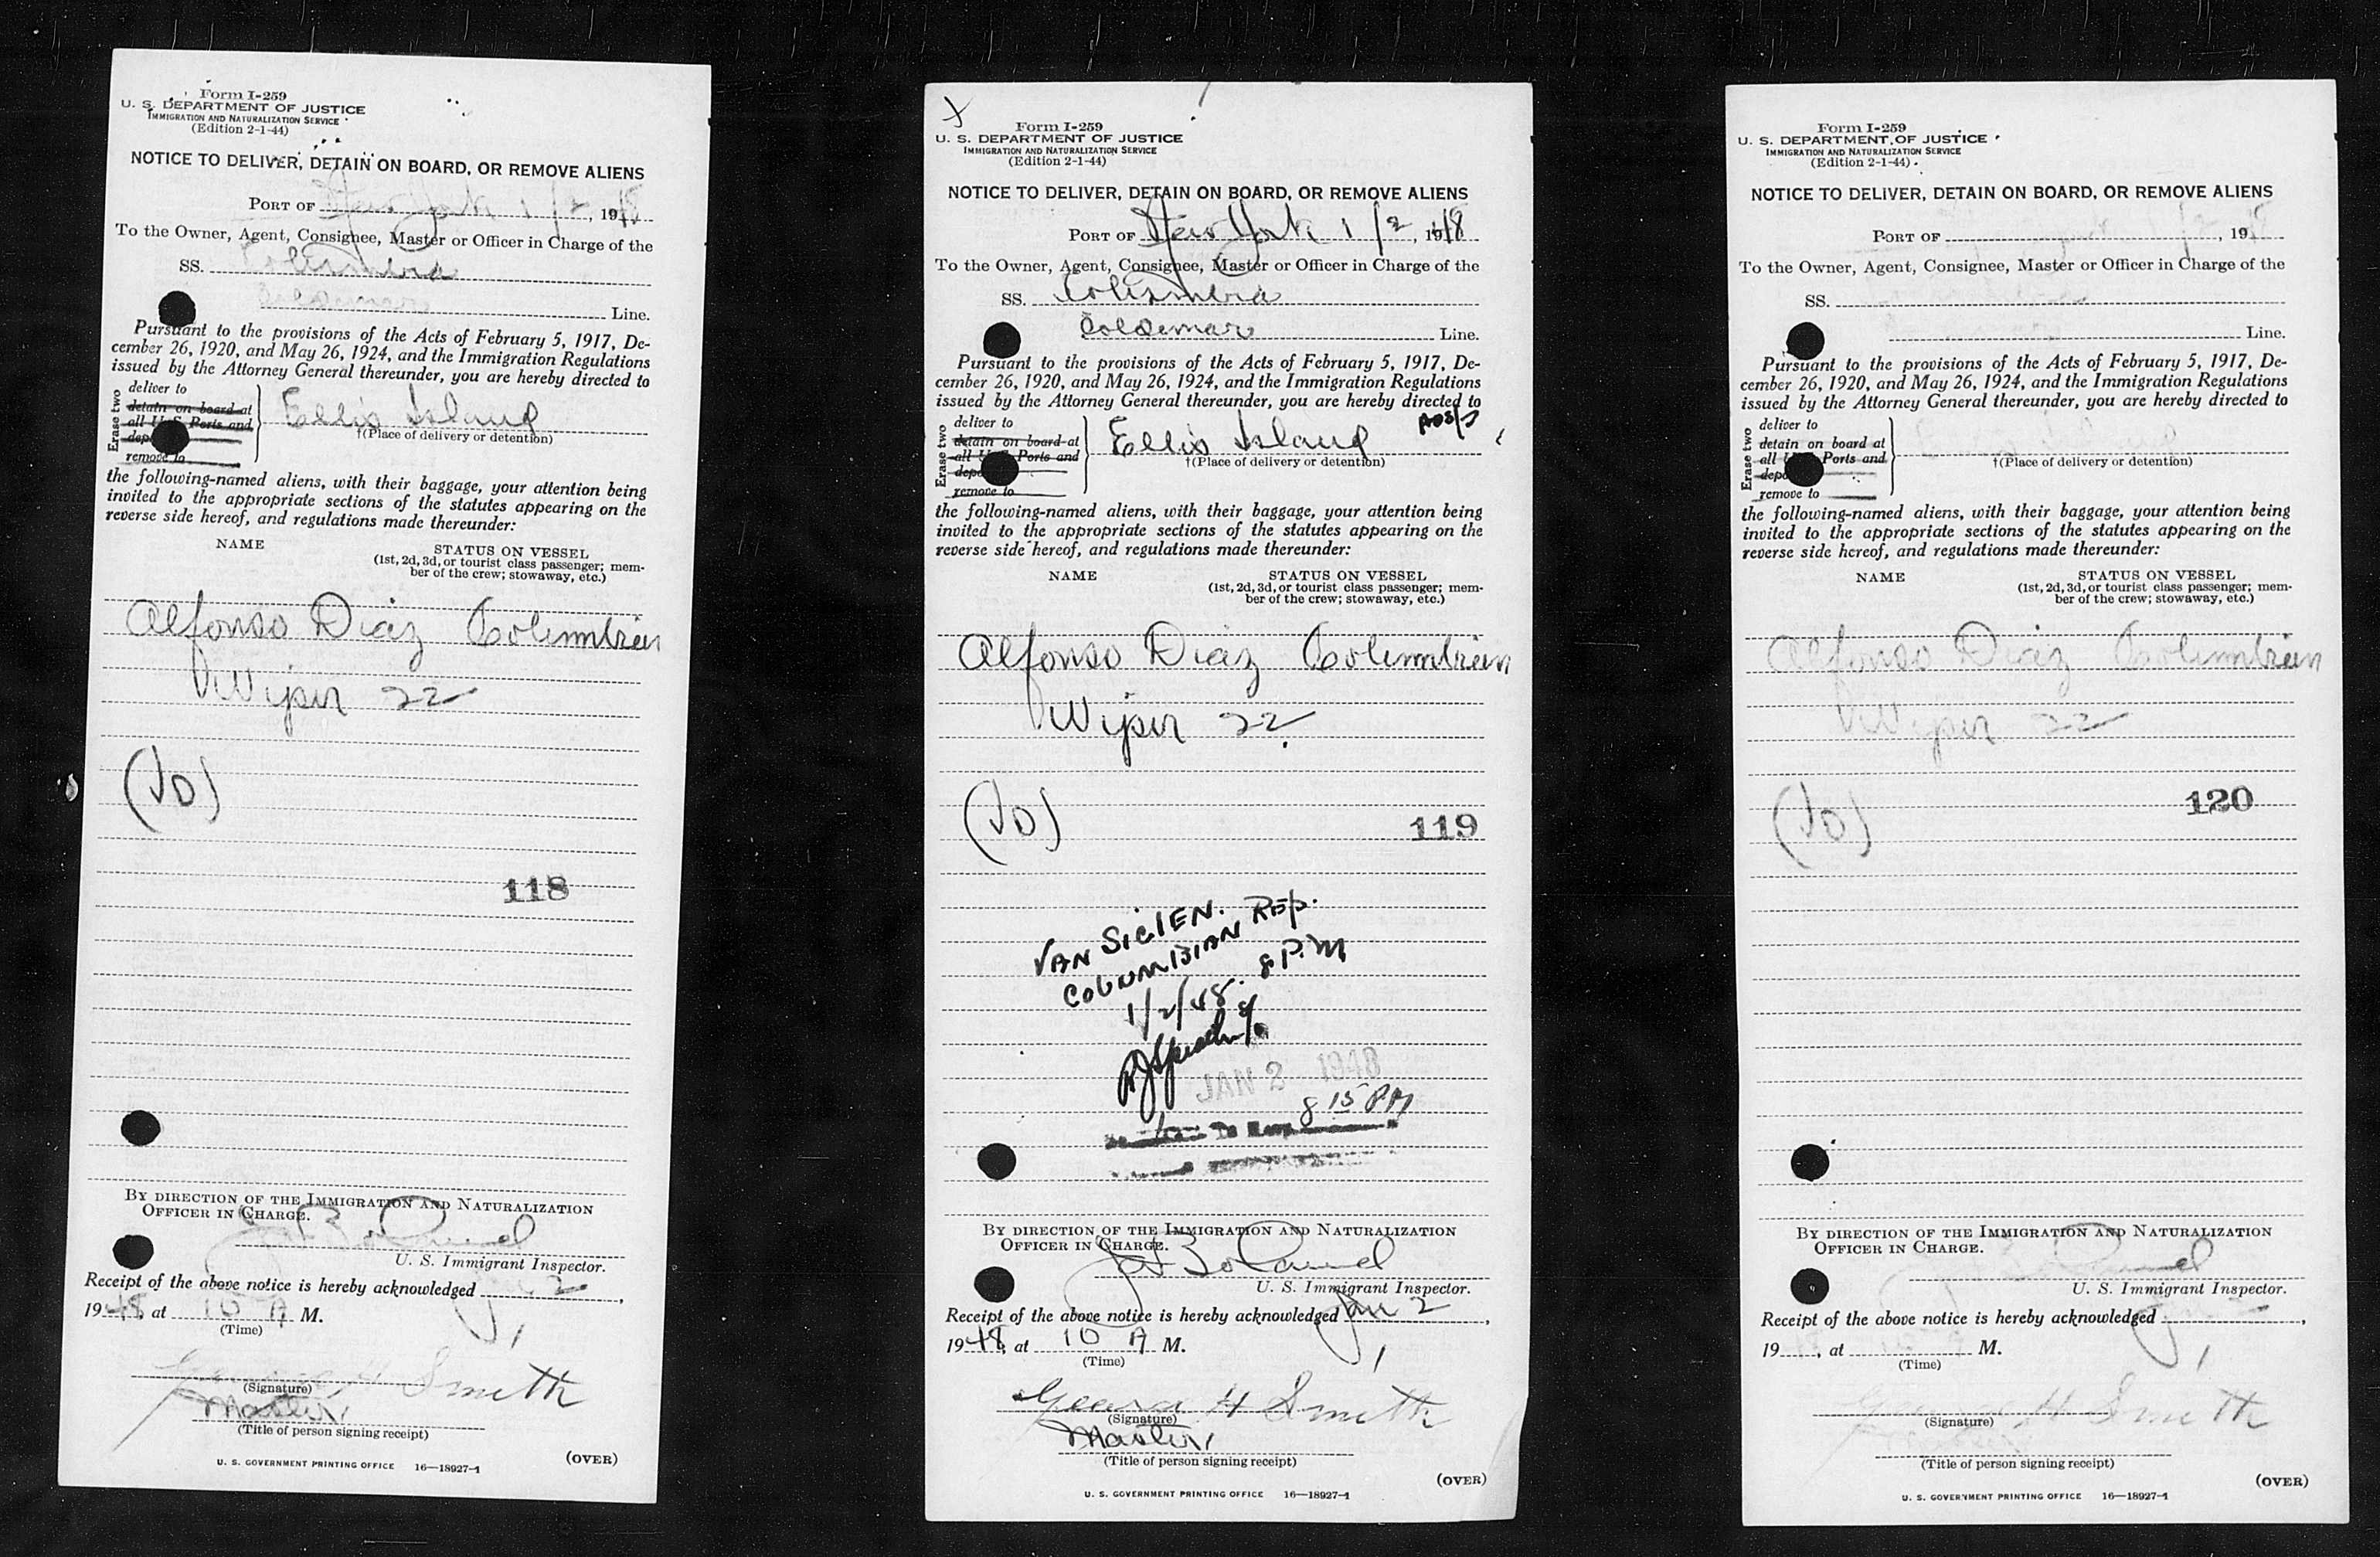 Form I-259
U. S. DEPARTMENT OF JUSTICE
IMMIGRATION AND NATURALIZATION SERVICE
(Edition 2-1-44)
NOTICE TO DELIVER, DETAIN ON BOARD, OR REMOVE ALIENS
PORT OF New York 1/2, 1948
To the Owner, Agent, Consignee, Master or Officer in Charge of the
SS. Columbia
Coldemar Line.
Pursuant to the provisions of the Acts of February 5, 1917, De-
cember 26, 1920, and May 26, 1924, and the Immigration Regulations
issued by the Attorney General thereunder, you are hereby directed to
Erase two
deliver to
detain on board at
all U. S. Ports and
remove to
Ellis Island
†(Place of delivery or detention)
the following-named aliens, with their baggage, your attention being
invited to the appropriate sections of the statutes appearing on the
reverse side hereof, and regulations made thereunder:
NAME STATUS ON VESSEL
(1st, 2d, 3d, or tourist class passenger; mem-
ber of the crew; stowaway, etc.)
Alfonso Diaz Columbian
Wiper 22
118
BY DIRECTION OF THE IMMIGRATION AND NATURALIZATION
OFFICER IN CHARGE.
U. S. Immigrant Inspector.
Receipt of the above notice is hereby acknowledged Jan 2,
1948, at 10 A M.
(Time)
George H Smith
(Signature)
Master
(Title of person signing receipt)
(OVER)
U. S. GOVERNMENT PRINTING OFFICE 16—18927-1
X
Form I-259
U. S. DEPARTMENT OF JUSTICE
IMMIGRATION AND NATURALIZATION SERVICE
(Edition 2-1-44)
NOTICE TO DELIVER, DETAIN ON BOARD, OR REMOVE ALIENS
PORT OF New York 1/2, 1948
To the Owner, Agent, Consignee, Master or Officer in Charge of the
SS. Columbia
Coldemar Line.
Pursuant to the provisions of the Acts of February 5, 1917, De-
cember 26, 1920, and May 26, 1924, and the Immigration Regulations
issued by the Attorney General thereunder, you are hereby directed to
Erase two
deliver to
detain on board at
all U. S. Ports and
remove to
Ellis Island
†(Place of delivery or detention)
the following-named aliens, with their baggage, your attention being
invited to the appropriate sections of the statutes appearing on the
reverse side hereof, and regulations made thereunder:
NAME STATUS ON VESSEL
(1st, 2d, 3d, or tourist class passenger; mem-
ber of the crew; stowaway, etc.)
Alfonso Diaz Columbian
Wiper 22
119
VAN SICIEN.
COLUMBIAN REP.
1/2/48. 8 P.M
JAN 2 1948
8 15 PM
BY DIRECTION OF THE IMMIGRATION AND NATURALIZATION
OFFICER IN CHARGE.
U. S. Immigrant Inspector.
Receipt of the above notice is hereby acknowledged Jan 2,
1948, at 10 A M.
(Time)
George H Smith
(Signature)
Master
(Title of person signing receipt)
(OVER)
U. S. GOVERNMENT PRINTING OFFICE 16—18927-1
Form I-259
U. S. DEPARTMENT OF JUSTICE
IMMIGRATION AND NATURALIZATION SERVICE
(Edition 2-1-44)
NOTICE TO DELIVER, DETAIN ON BOARD, OR REMOVE ALIENS
PORT OF , 19
To the Owner, Agent, Consignee, Master or Officer in Charge of the
SS.
Line.
Pursuant to the provisions of the Acts of February 5, 1917, De-
cember 26, 1920, and May 26, 1924, and the Immigration Regulations
issued by the Attorney General thereunder, you are hereby directed to
Erase two
deliver to
detain on board at
all U. S. Ports and
remove to
†(Place of delivery or detention)
the following-named aliens, with their baggage, your attention being
invited to the appropriate sections of the statutes appearing on the
reverse side hereof, and regulations made thereunder:
NAME STATUS ON VESSEL
(1st, 2d, 3d, or tourist class passenger; mem-
ber of the crew; stowaway, etc.)
Alfonso Diaz Columbian
Wiper 22
120
BY DIRECTION OF THE IMMIGRATION AND NATURALIZATION
OFFICER IN CHARGE.
U. S. Immigrant Inspector.
Receipt of the above notice is hereby acknowledged ,
19 , at M.
(Time)
H Smith
(Signature)
(Title of person signing receipt)
(OVER)
U. S. GOVERNMENT PRINTING OFFICE 16—18927-1